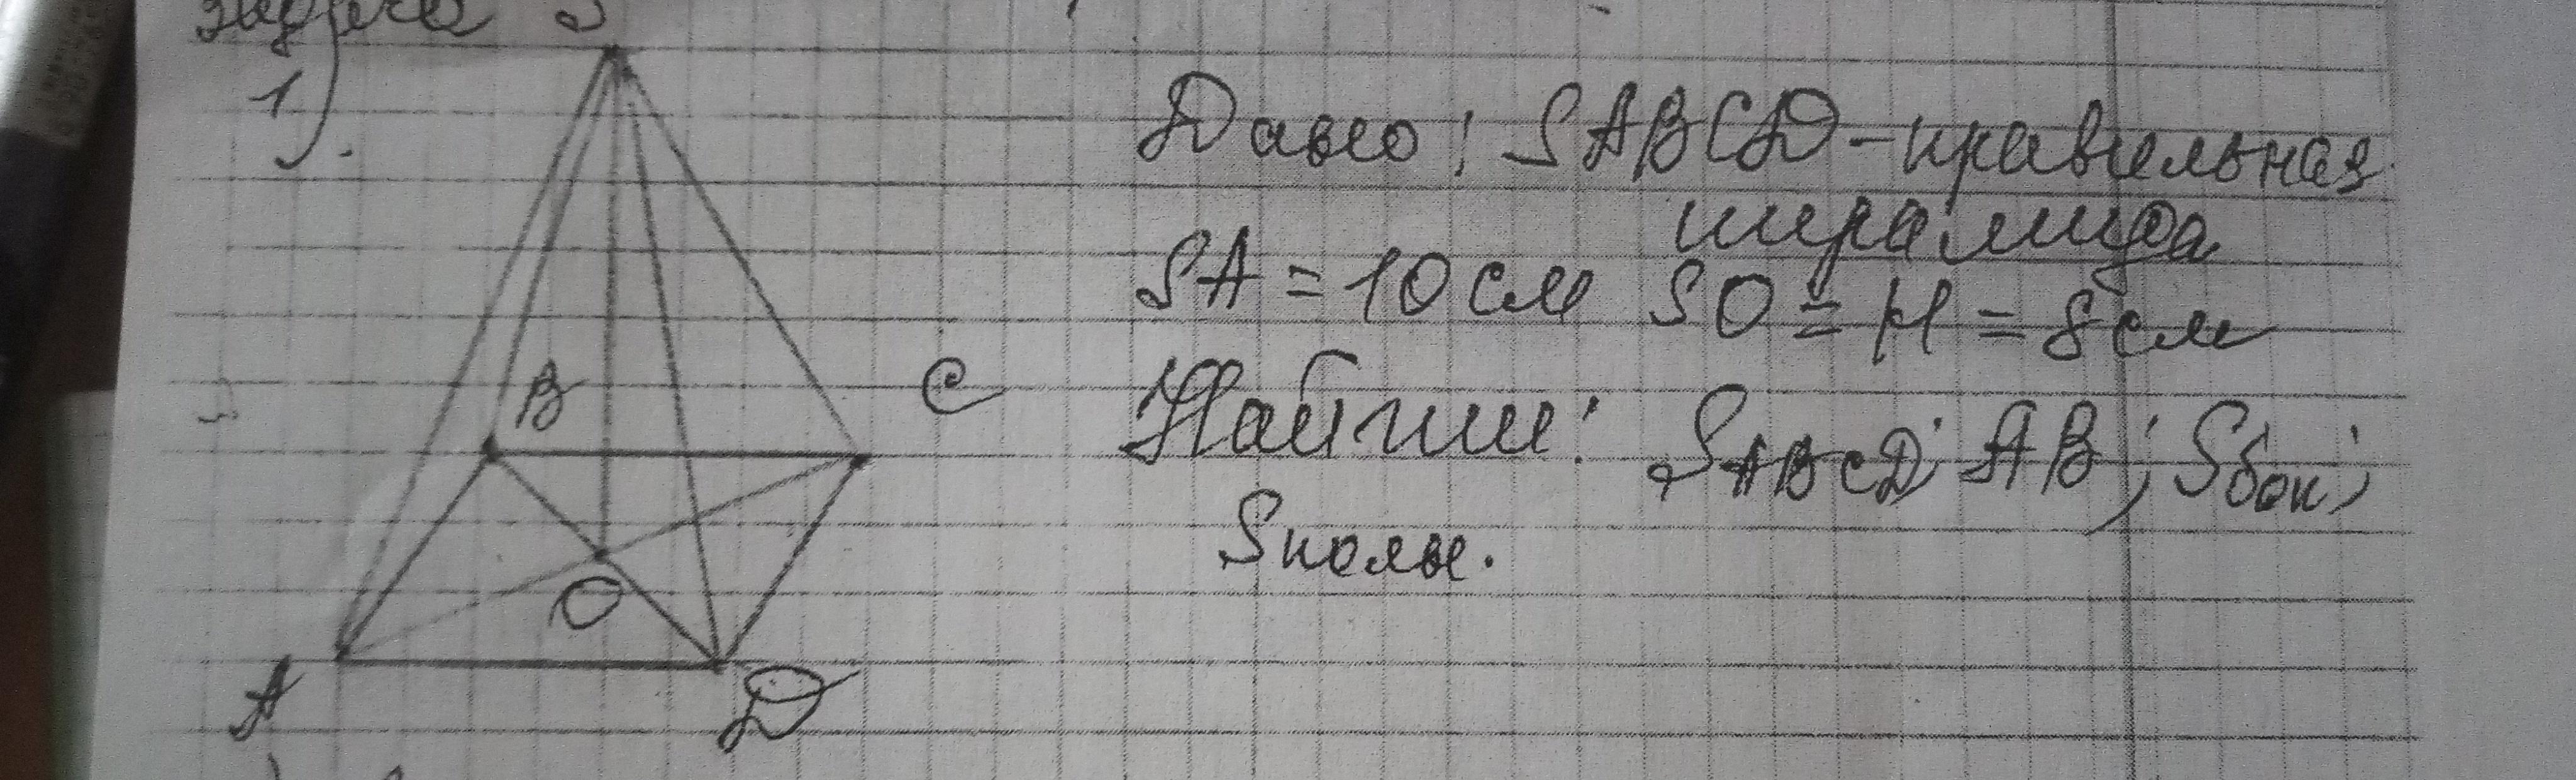 задача S
1).
Дано: SABCD - правильная
пирамида
SA = 10 см SO = H = 8 см
Найти: SABCD; AB; Sбок;
Sполн.
B
C
O
A
D